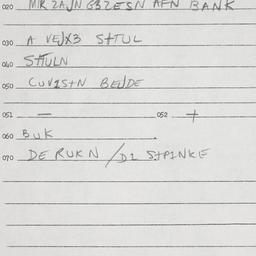 020 MIR ZAJN GEZESN AFN BANK
030 A VEJX3 SHTUL
040 SHTULN
050 CUVISTN BEJDE
051 — 052 +
060 BUK
070 DE RUKN / DI SHPINKE